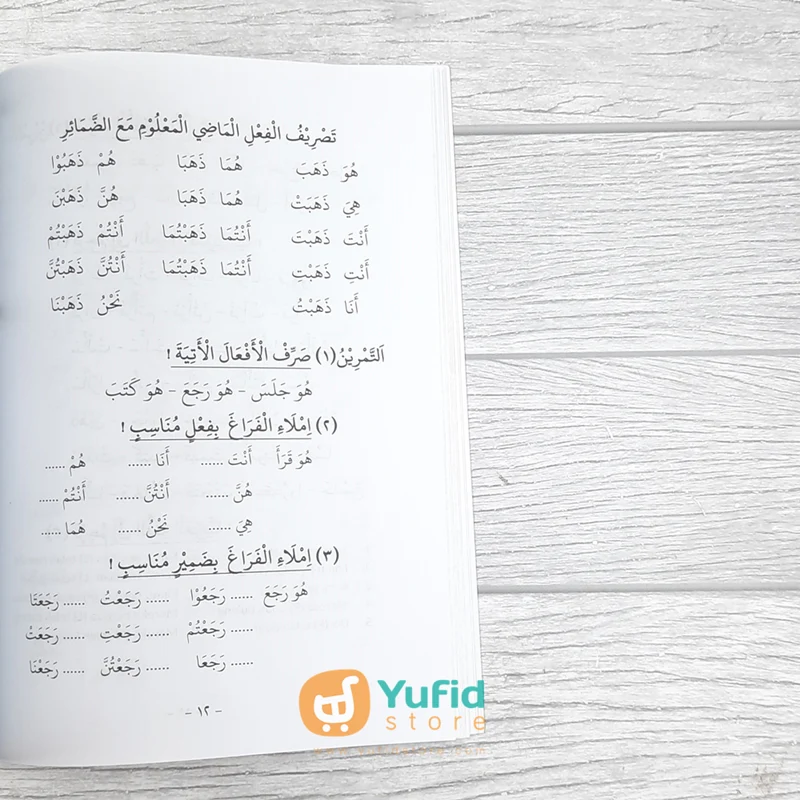 تَصْرِيْفُ الْفِعْلِ الْمَاضِي الْمَعْلُوْمِ مَعَ الضَّمَائِرِ
هُوَ ذَهَبَ هُمَا ذَهَبَا هُمْ ذَهَبُوْا
هِيَ ذَهَبَتْ هُمَا ذَهَبَا هُنَّ ذَهَبْنَ
أَنْتَ ذَهَبْتَ أَنْتُمَا ذَهَبْتُمَا أَنْتُمْ ذَهَبْتُمْ
أَنْتِ ذَهَبْتِ أَنْتُمَا ذَهَبْتُمَا أَنْتُنَّ ذَهَبْتُنَّ
أَنَا ذَهَبْتُ نَحْنُ ذَهَبْنَا
اَلتَّمْرِيْنُ(١) صَرِّفْ الْأَفْعَالَ الْأَتِيَةَ !
هُوَ جَلَسَ - هُوَ رَجَعَ - هُوَ كَتَبَ
(٢) اِمْلَاءِ الْفَرَاغَ بِفِعْلٍ مُنَاسِبٍ !
هُوَ قَرَأَ أَنْتَ ...... أَنَا ...... هُمْ ......
هُنَّ ...... أَنْتُنَّ ...... أَنْتُمْ ......
هِيَ ...... نَحْنُ ...... هُمَا ......
(٣) اِمْلَاءِ الْفَرَاغَ بِضَمِيْرٍ مُنَاسِبٍ !
هُوَ رَجَعَ ...... رَجَعُوْا ...... رَجَعْتُ ...... رَجَعَتَا
...... رَجَعْتُمْ ...... رَجَعْتِ ...... رَجَعَتْ
...... رَجَعَا ...... رَجَعْتُنَّ ...... رَجَعْنَا
- ١٢ -
Yufid
store